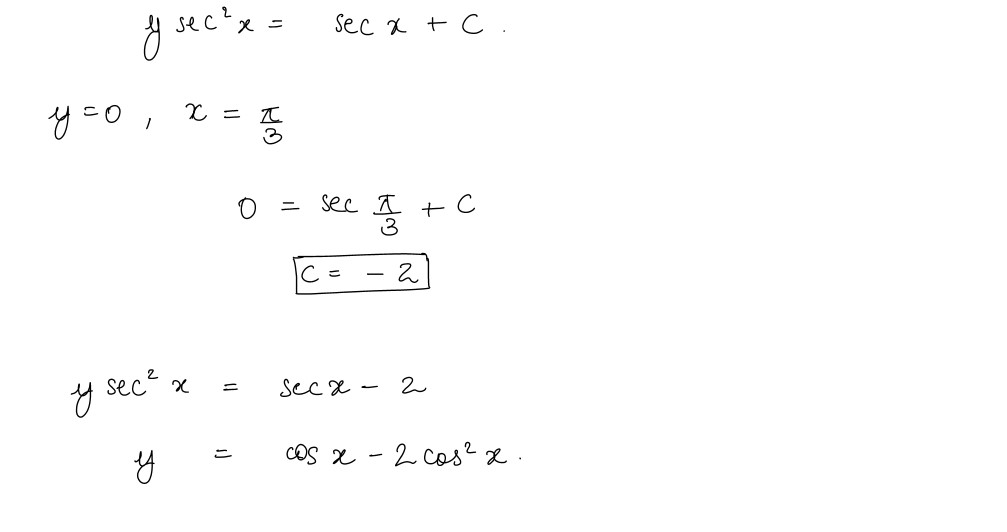 y sec²x = sec x + C .
y = 0 , x = π/3
0 = sec π/3 + C
C = - 2
y sec² x = sec x - 2
y = cos x - 2 cos² x .